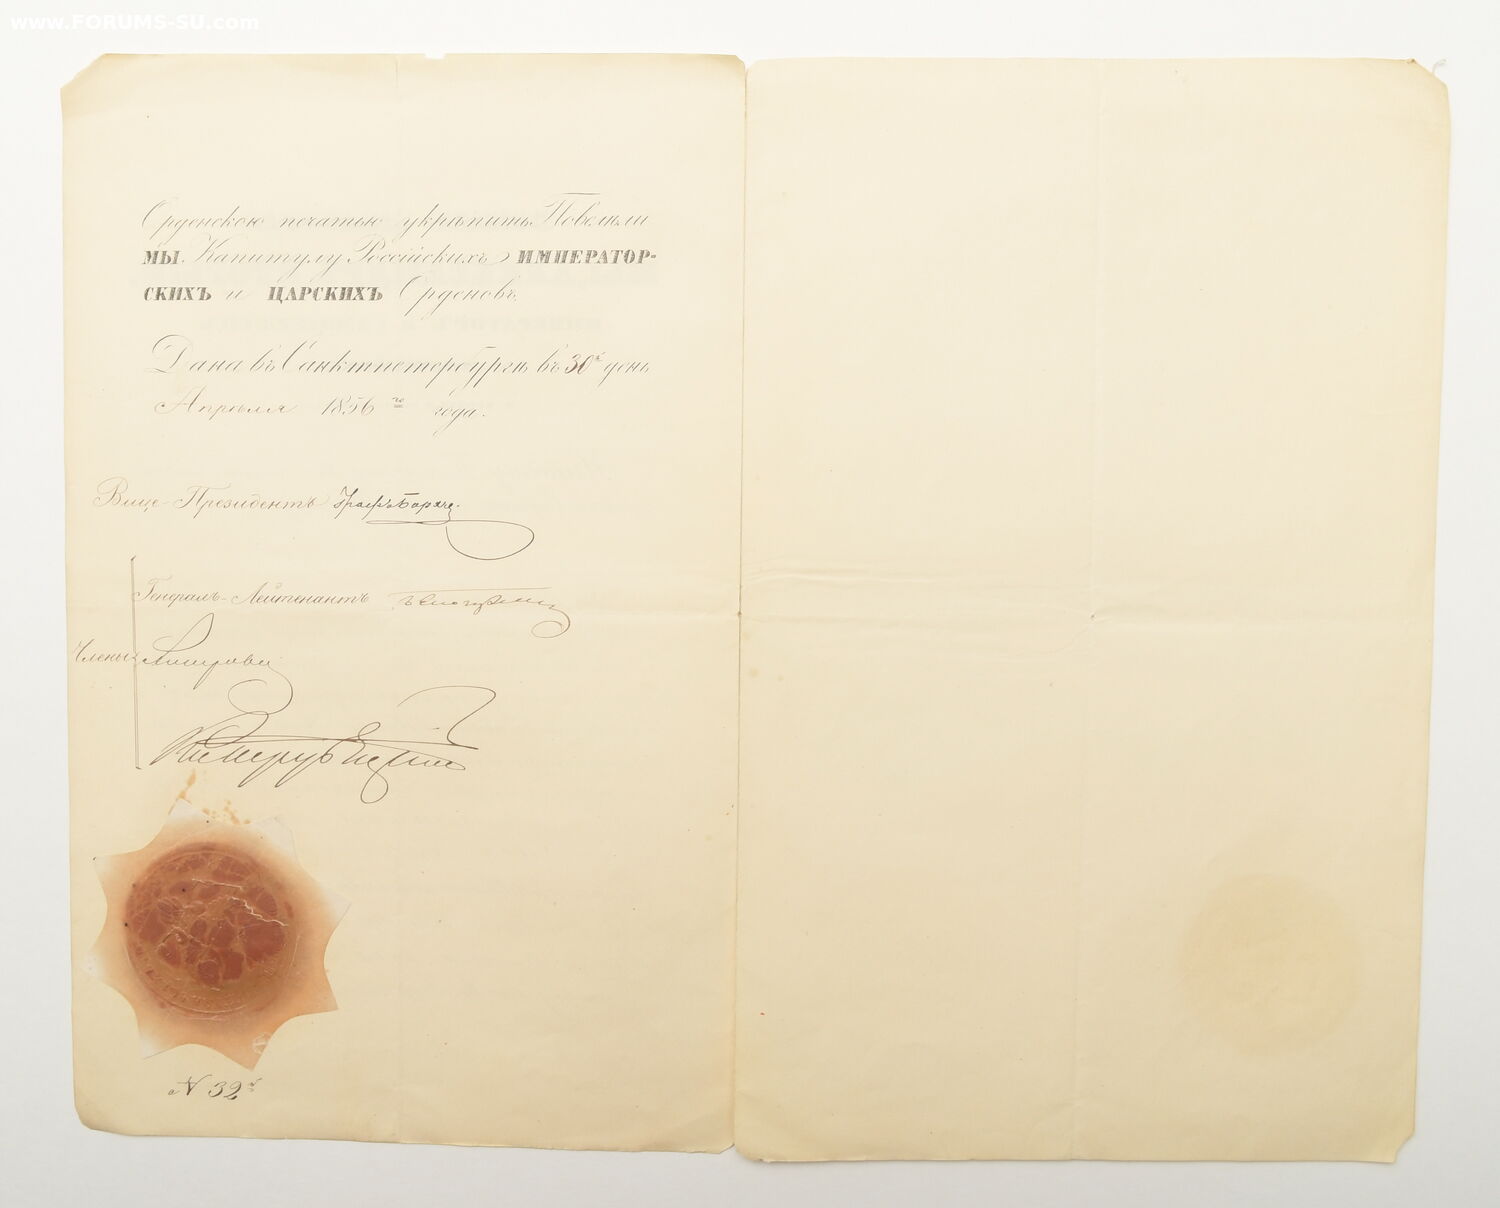 www.FORUMS-SU.com
Орденскою печатью укрѣпить Повелѣли
МЫ Капитулу Россійскихъ ИМПЕРАТОР-
СКИХЪ и ЦАРСКИХЪ Орденовъ.
Дана въ Санктпетербургѣ въ 30й день
Апрѣля 1856го года.
Вице-Президентъ Графъ
Генералъ-Лейтенантъ
Члены
№ 32й